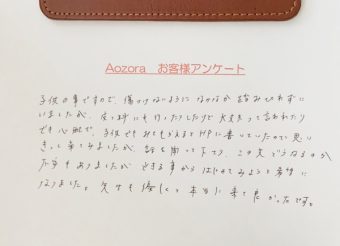 Aozora お客様アンケート
子供の事ですので、傷つけないようになかなか踏み切れずに
いましたが、皮フ科にも行ったりしたけど大丈夫って言われたり
でも心配で、子供でもみてもらえるとHPに書いていたので思い
きって来てみましたが、話を聞って下さり、この先どうなるのか
不安もありましたが できる事からはじめてみようと希望に
なりました。先生も優しく、本当に来て良かったです。